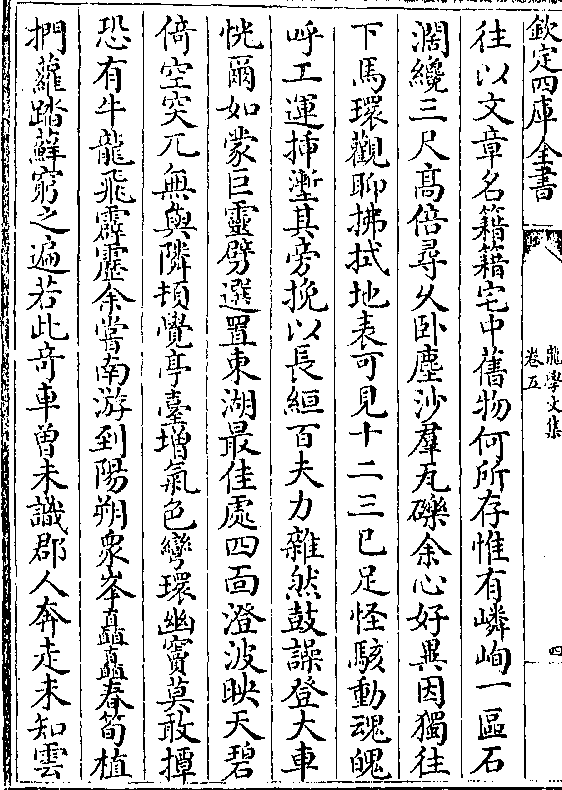 欽定四庫全書
龍學文集
卷五
四
往以文章名籍籍宅中舊物何所存惟有嶙峋一區石
濶纔三尺髙倍尋乆卧塵沙羣瓦礫余心好異因獨往
下馬環觀聊拂拭地表可見十二三已足怪駭動魂魄
呼工運揷壍其旁挽以長絙百夫力雜然鼓譟登大車
恍爾如蒙巨靈劈選置東湖最佳處四面澄波映天碧
倚空突兀無與隣頓覺亭臺增氣色彎環幽竇莫敢撢
恐有牛龍飛霹靂余嘗南游到陽朔衆峯矗矗春筍植
捫蘿踏蘚窮之遍若此竒車曽未識郡人奔走未知雲